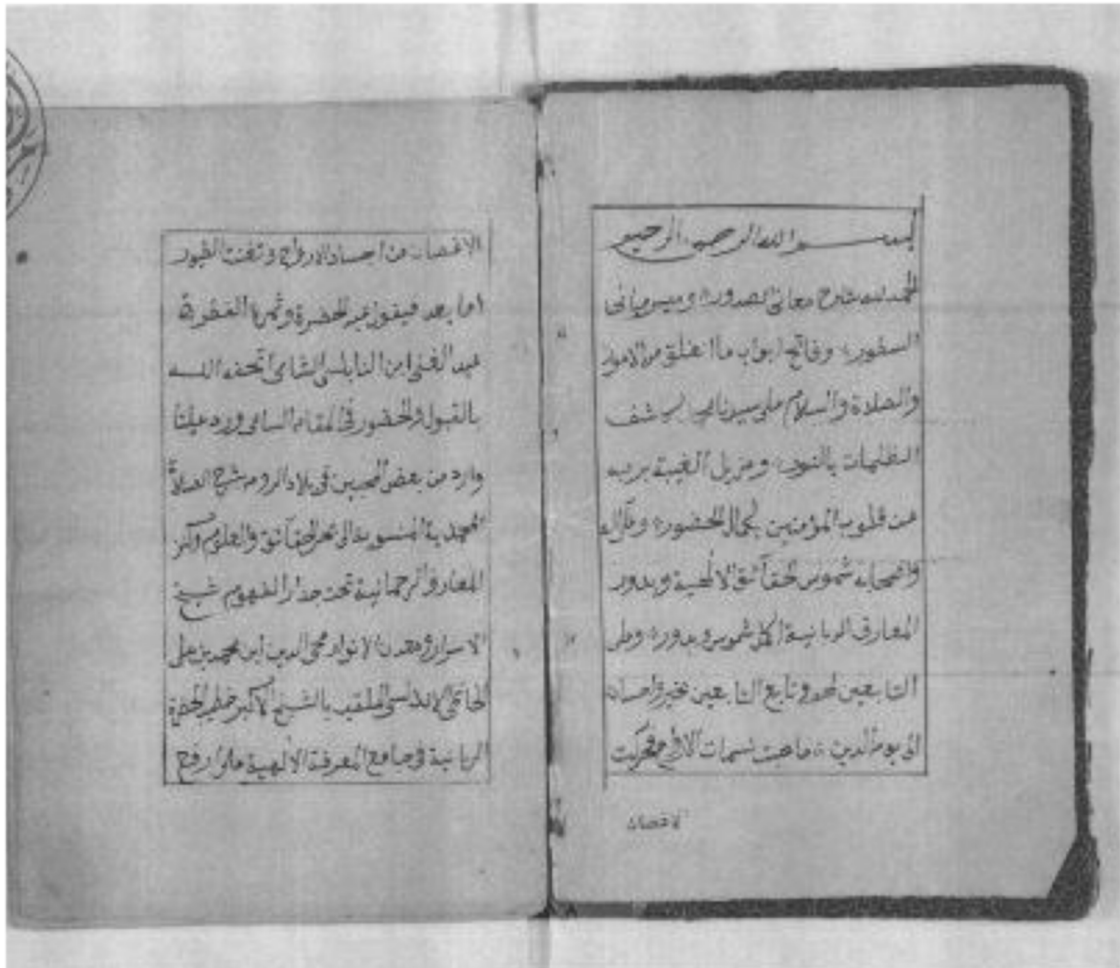 بسم الله الرحمن الرحيم
الحمد لله شارح معاني الصدور وميسر مباني
السطور وفاتح ابواب ما انغلق من الامور
والصلاة والسلام على سيدنا كاشف
الظلمات بالنور ومزيل الغيبة بربه
عن قلوب المؤمنين بحال الحضور وعلى اله
واصحابه شموس الحقائق الالهية وبدور
المعارف الربانية اكمل شموس وبدور وعلى
التابعين لهم وتابع التابعين بخير واحسان
الى يوم الدين ما هبت نسمات الارواح فحركت
الاغصان
الاغصان من اجساد الارواح وتغنت الطيور
اما بعد فيقول عبد الحضرة وثمرة
عبد الغني ابن النابلسي الشامي اتحفه الله
بالقبول والحضور في المقام السامي ورد علينا
وارد من بعض المحبين في بلاد الروم شرح الصلاة
المحمدية المنسوبة الى بحر الحقائق والعلوم وكنز
المعارف الرحمانية تحت جدار الفهوم شيخ
الاسرار ومعدن الانوار محي الدين ابن محمد بن علي
الحاتمي الاندلسي الملقب بالشيخ الاكبر خطيب الحضرة
الربانية في جامع المعرفة الالهية على ارفع